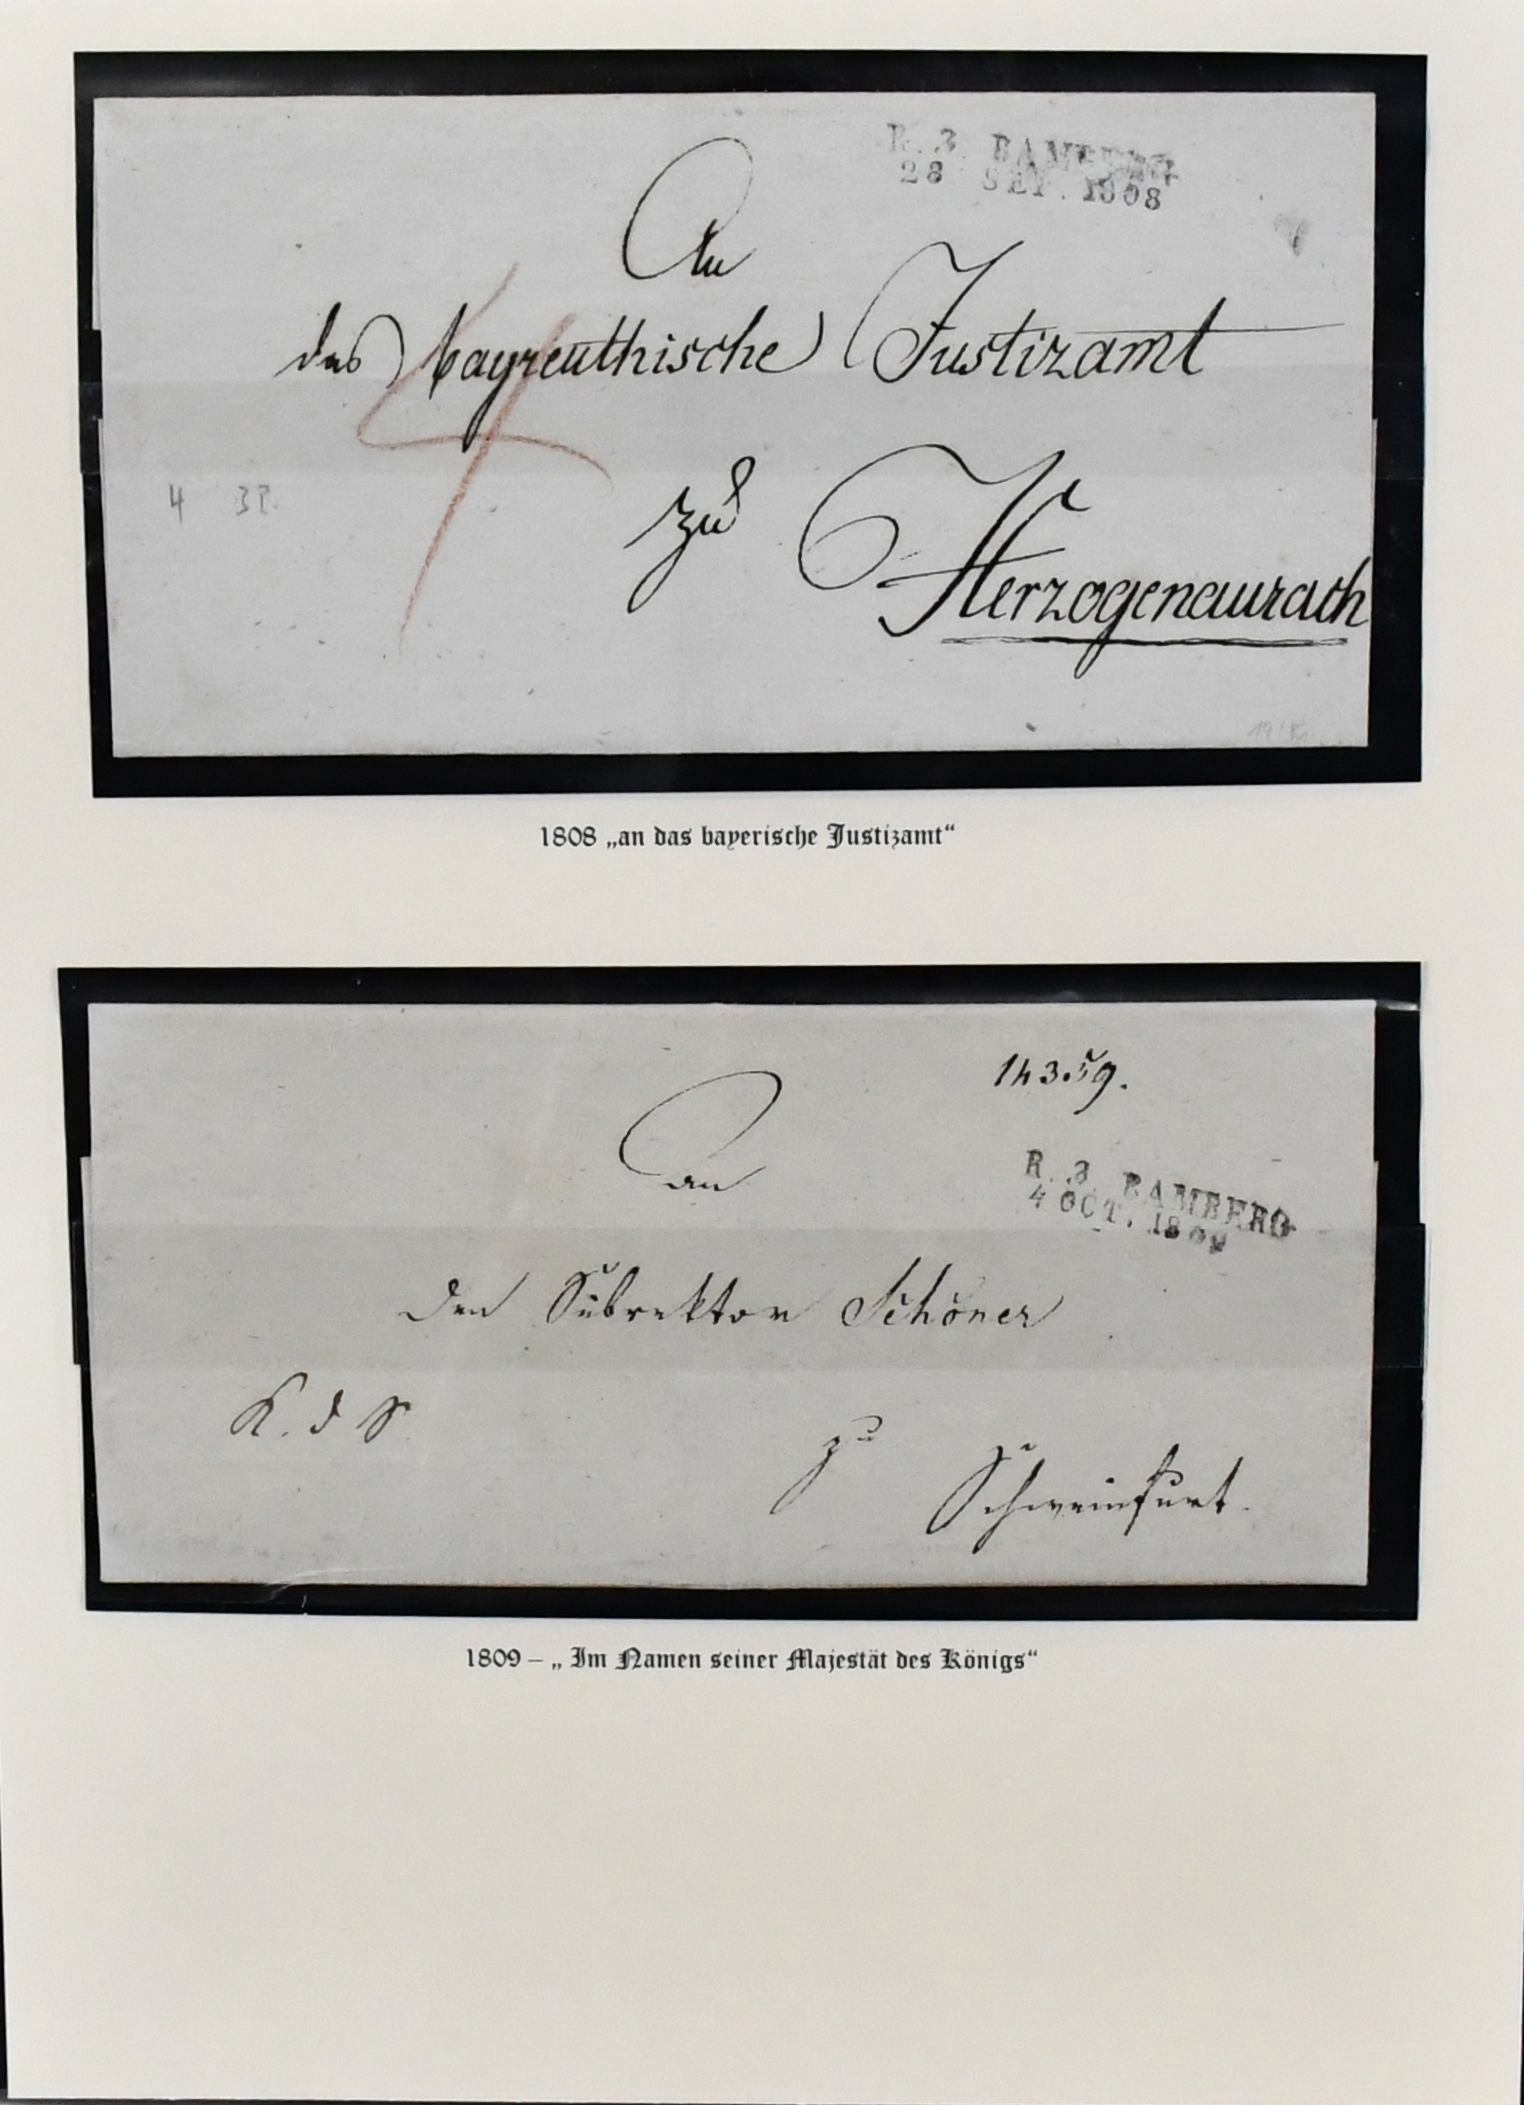 R. 3 BAMBERG
28 SEP. 1808
An
das bayreuthische Justizamt
4
4 3P.
zu
Herzogenaurach
1808 „an das bayerische Justizamt“
14359.
An
R. 3. BAMBERG
4 OCT. 1809
den Subrektor Schöner
K. d S
zu
Schweinfurt.
1809 – „ Im Namen seiner Majestät des Königs“